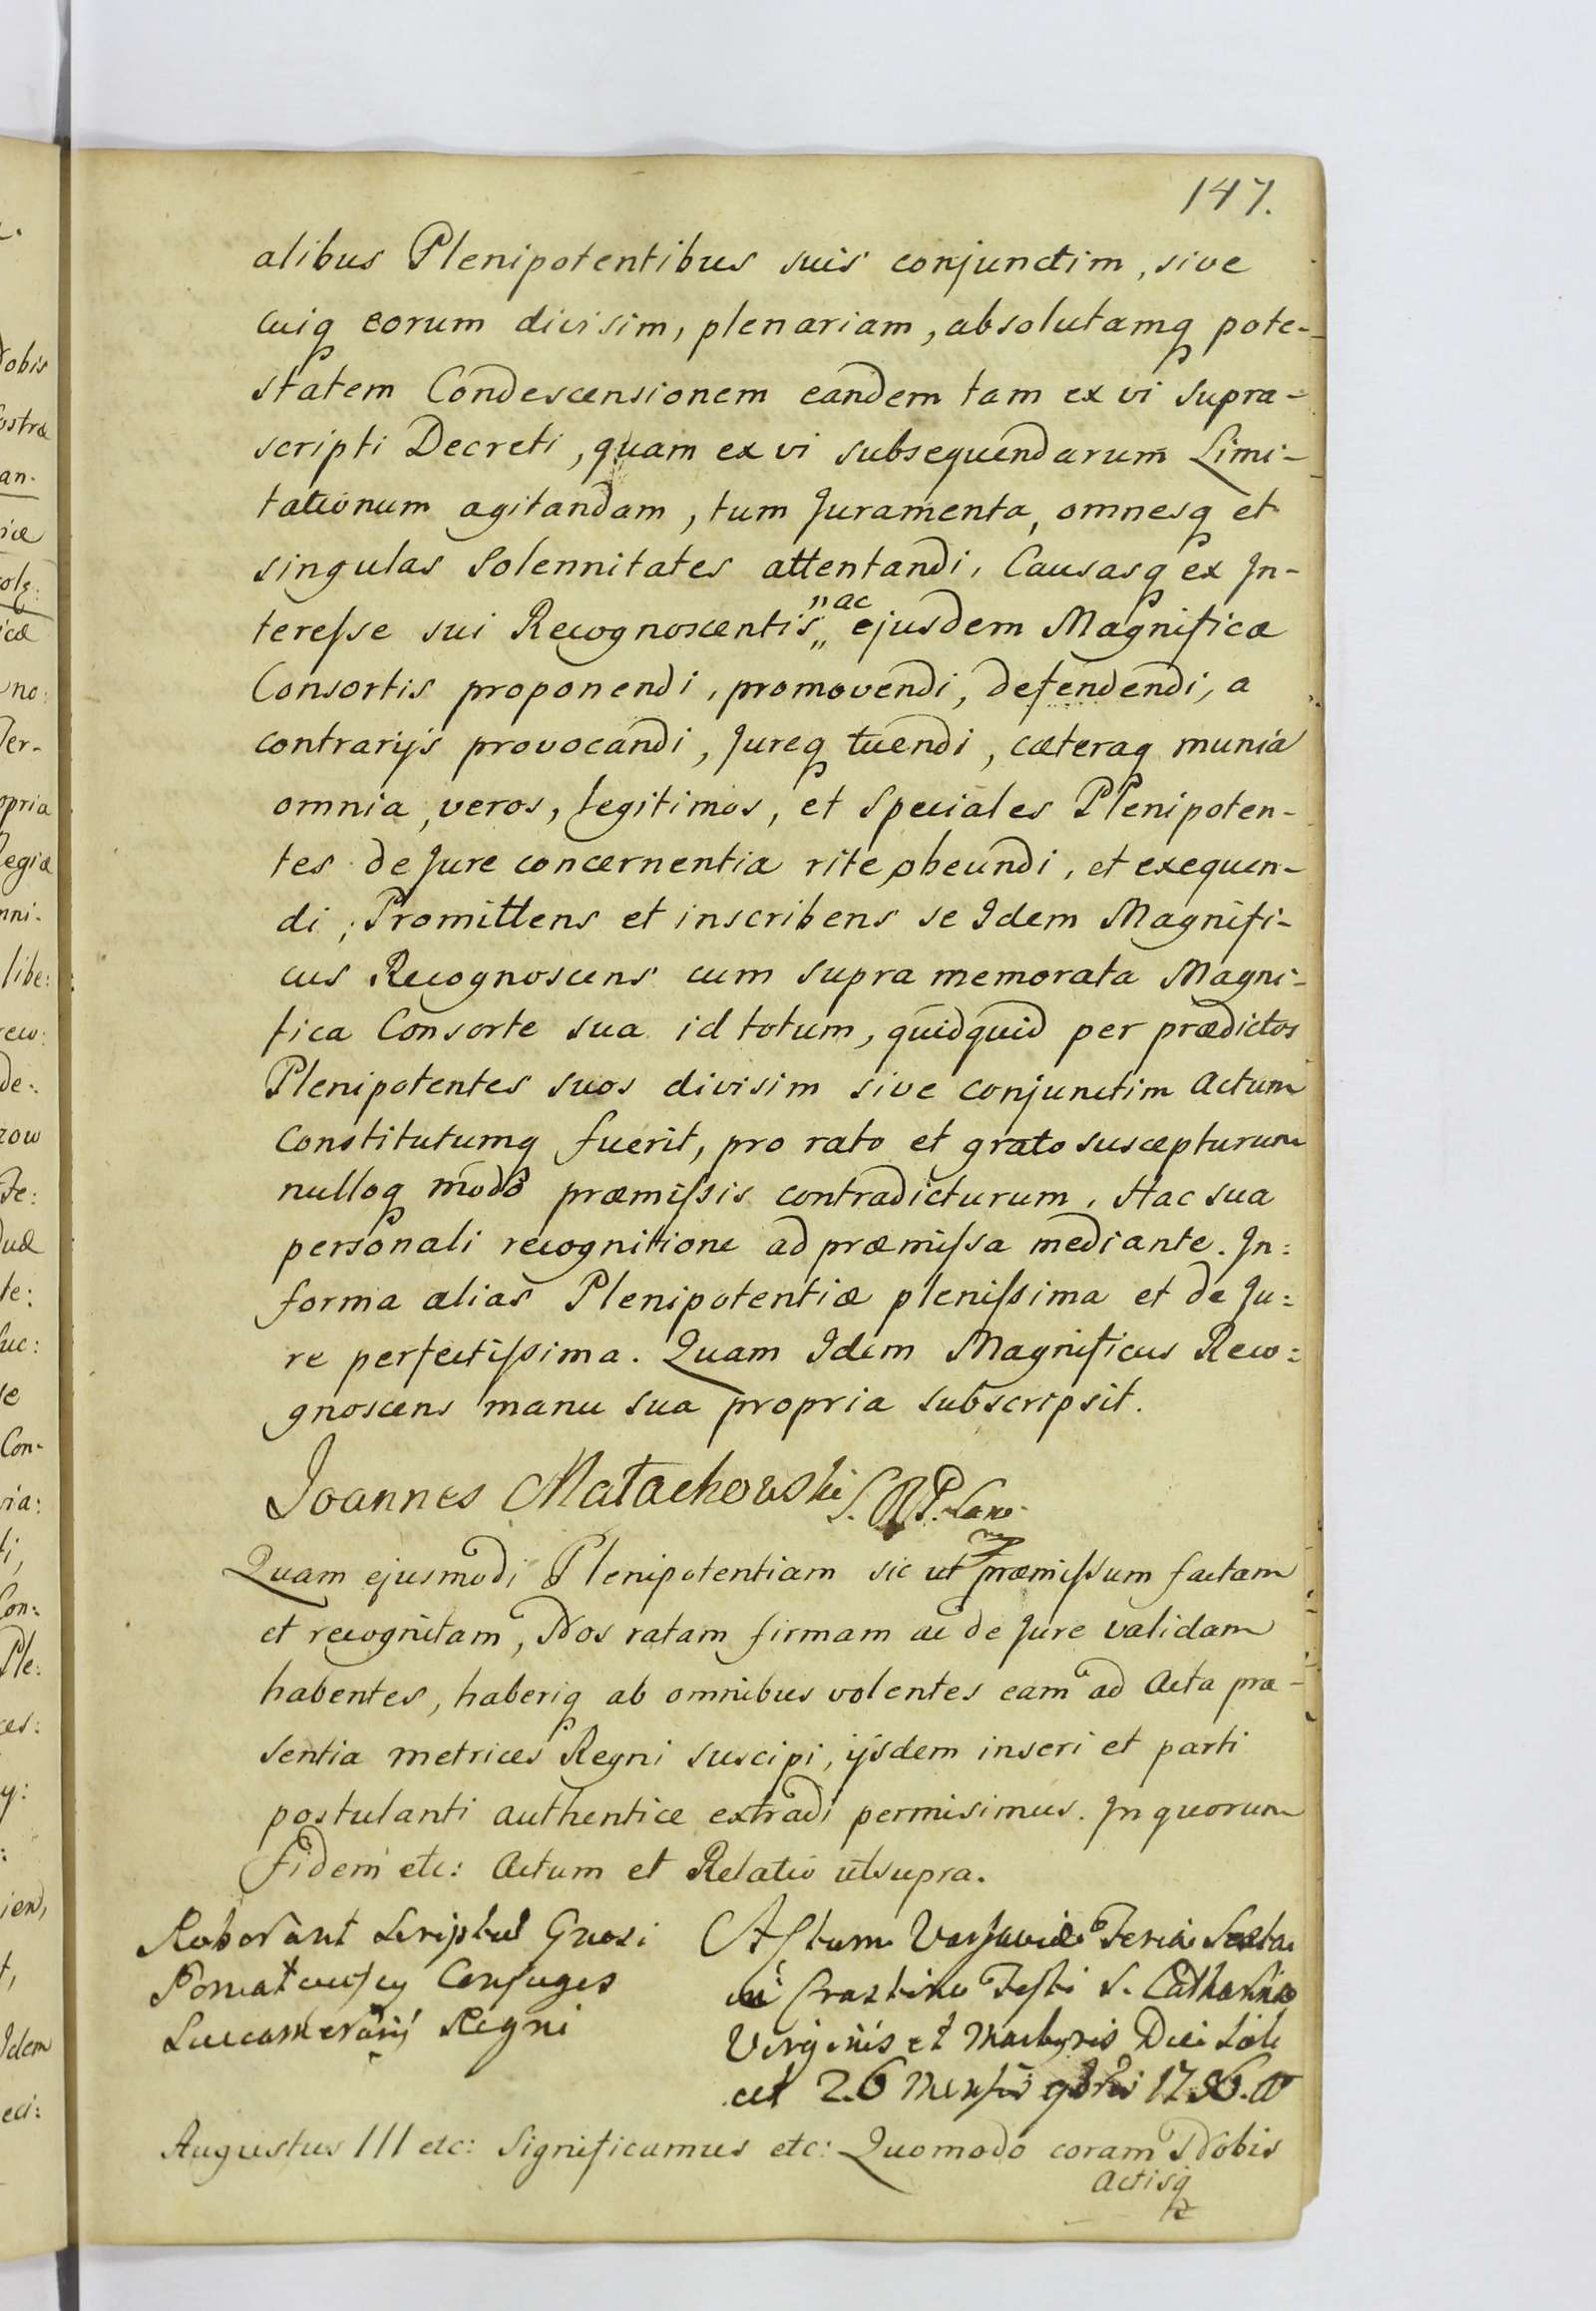 147.
alibus Plenipotentibus suis conjunctim, sive
cuiq eorum divisim, plenariam, absolutamq pote-
statem Condescensionem eandem tam ex vi supra-
scripti Decreti, quam ex vi subsequendarum Limi-
tationum agitandam, tum Juramenta, omnesq et
singulas Solennitates attentandi, Causasq ex In-
teresse sui Recognoscentis „ac ejusdem Magnificæ
Consortis proponendi, promovendi, defendendi, a
contrarijs provocandi, Jureq tuendi, cæteraq munia
omnia, veros, legitimos, et Speciales Plenipoten-
tes de Jure concernentia rite obeundi, et exequen-
di, Promittens et inscribens se Idem Magnifi-
cus Recognoscens cum supra memorata Magni-
fica Consorte sua id totum, quidquid per prædictos
Plenipotentes suos divisim sive conjunctim Actum
Constitutumq fuerit, pro rato et grato suscepturum
nulloq modo præmissis contradicturum. Hac sua
personali recognitione ad præmissa mediante. In:
forma alias Plenipotentiæ plenissima et de Ju:
re perfectissima. Quam Idem Magnificus Reco:
gnoscens manu sua propria subscripsit.
Joannes Małachowski S. R P.
Quam ejusmodi Plenipotentiam sic ut præmissum factam
et recognitam, Nos ratam firmam ac de Jure validam
habentes, haberiq ab omnibus volentes eam ad Acta præ-
sentia metrices Regni suscipi, ijsdem inseri et parti
postulanti authentice extradi permisimus. In quorum
fidem etc: Actum et Relatio ut supra.
Roborant Scriptum Gnosi
Conjuges
Succamerarij Regni
Actum Varsaviæ Feria Sexta
in Crastino Festi S. Catharinæ
Virginis et Martyris Die
26 Mensis 9bris 17
Augustus III etc: Significamus etc: Quomodo coram Nobis
Actisq